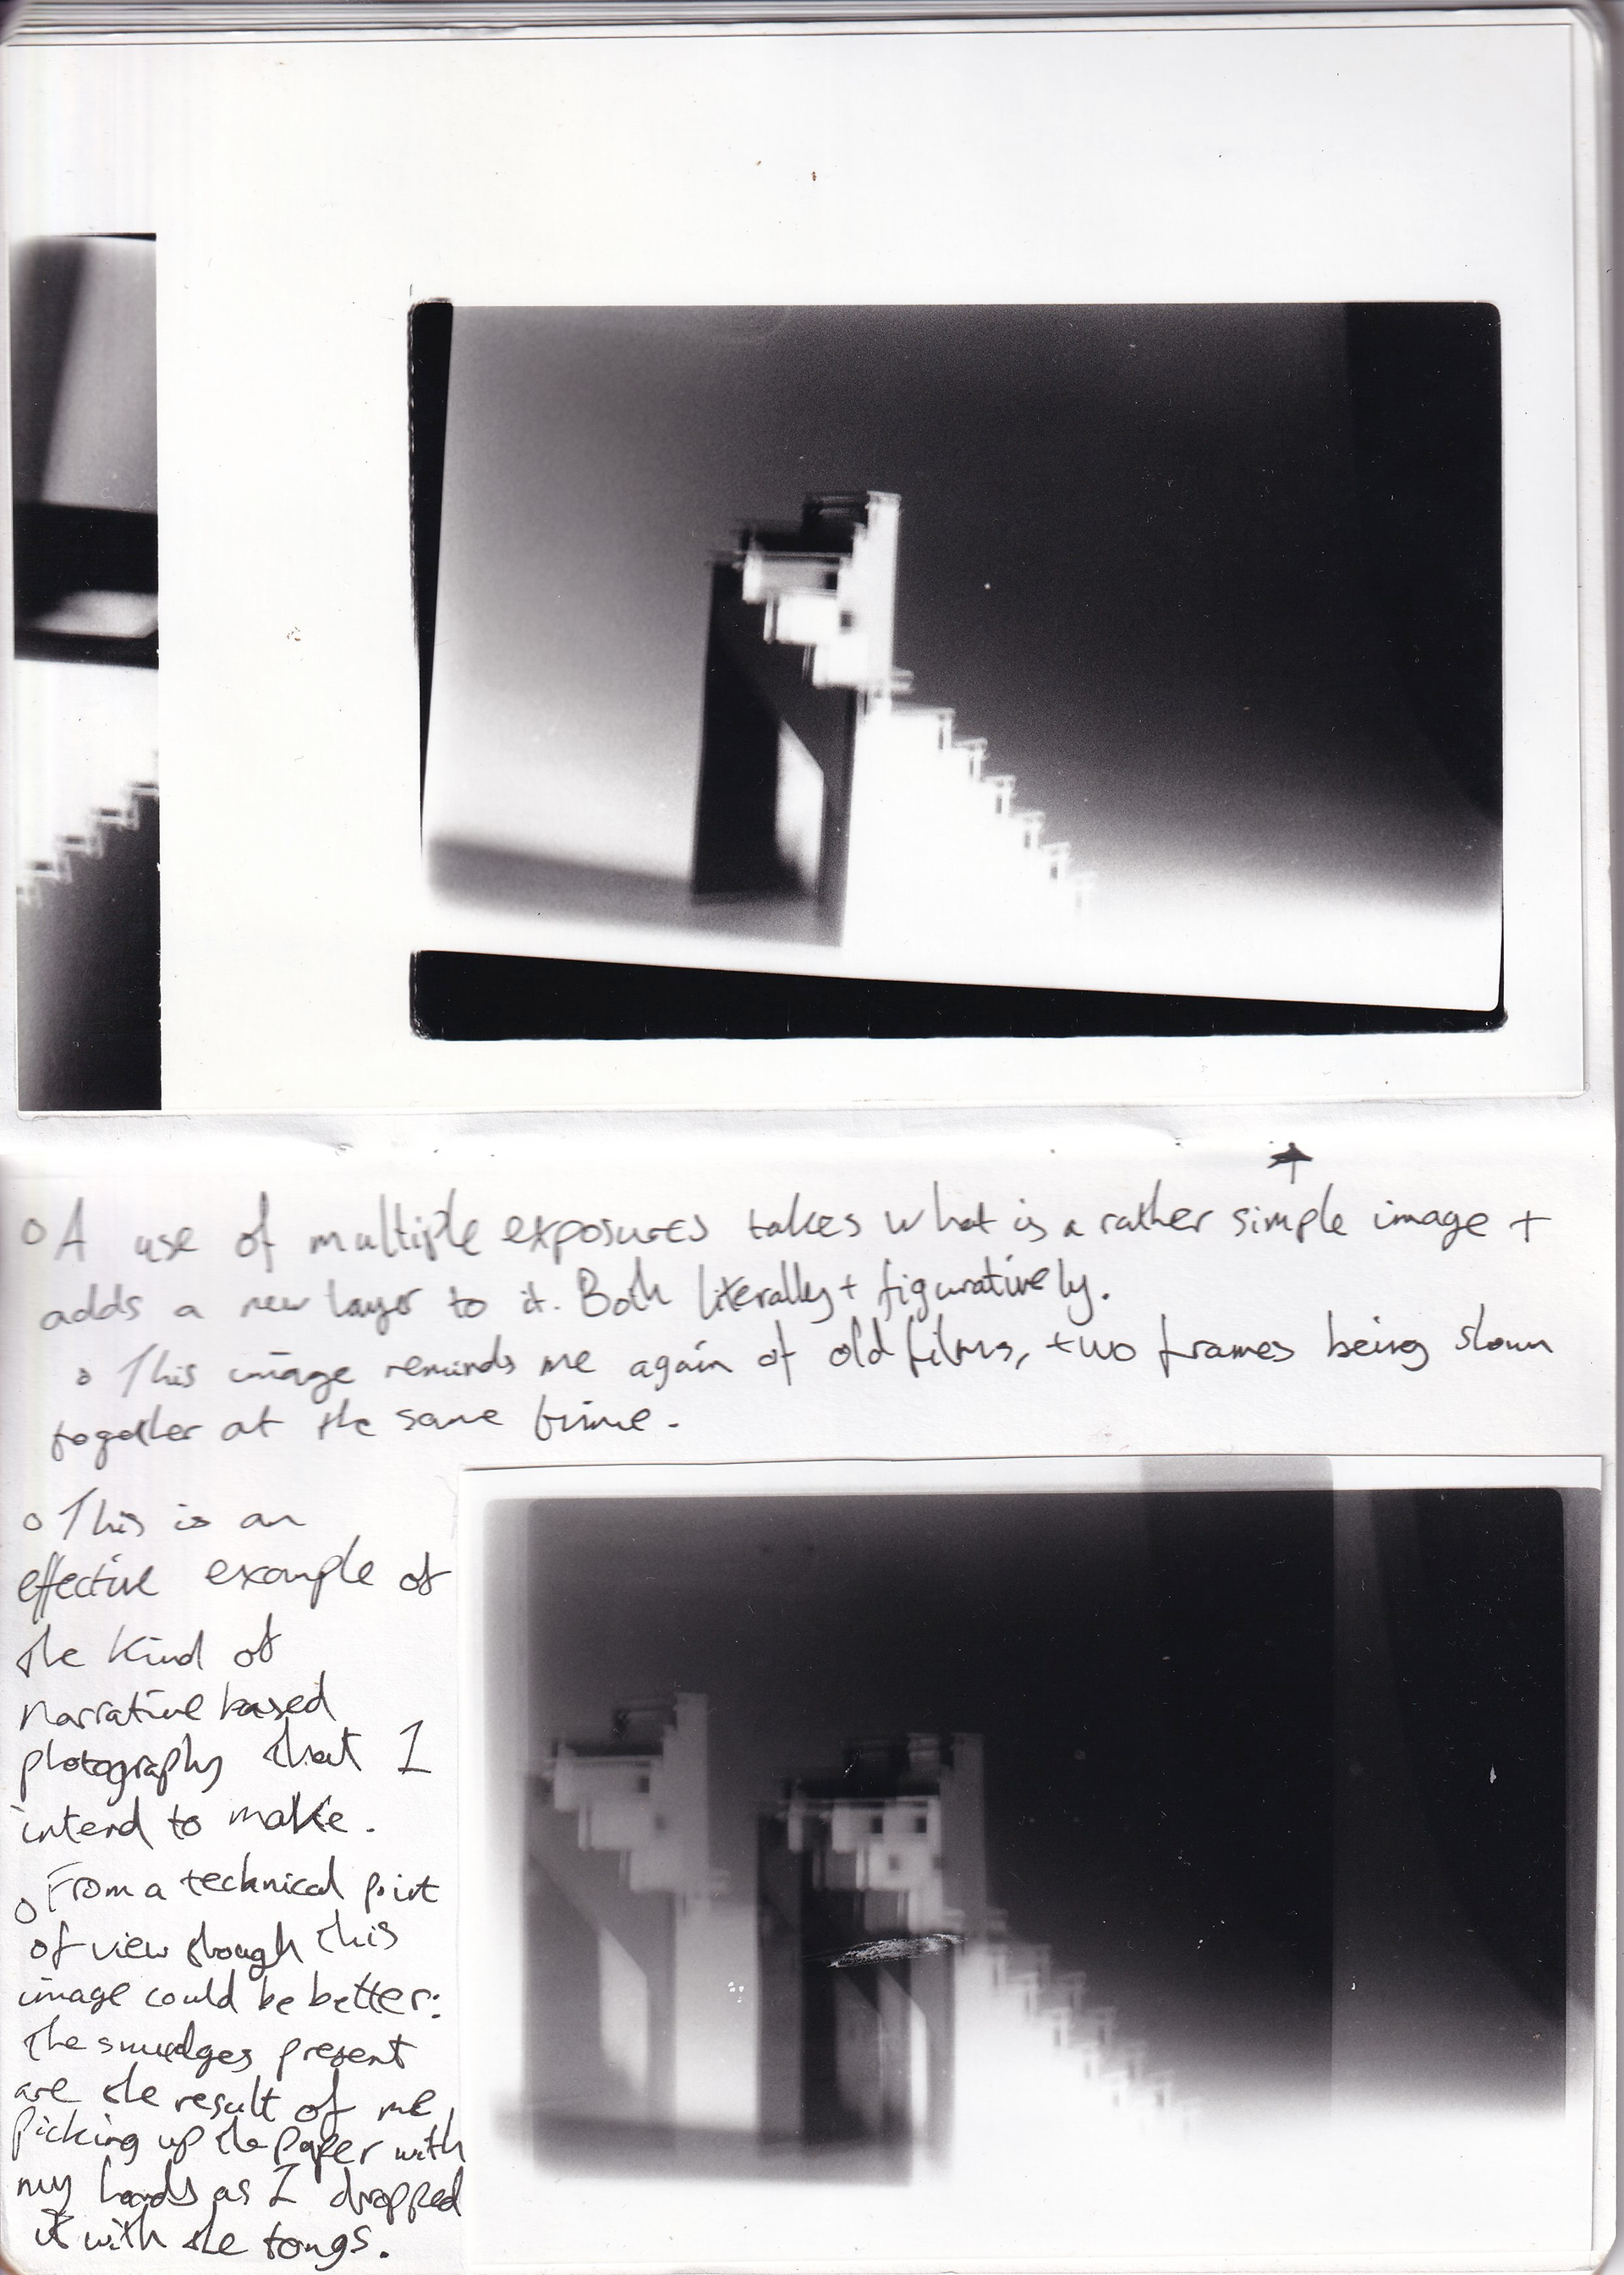 A use of multiple exposures takes what is a rather simple image +
adds a new layer to it. Both literally + figuratively.
This image reminds me again of old films, two frames being shown
together at the same time.
This is an
effective example of
the kind of
narrative based
photography that I
intend to make.
From a technical point
of view though this
image could be better:
the smudges present
are the result of me
picking up the paper with
my hands as I dropped
it with the tongs.